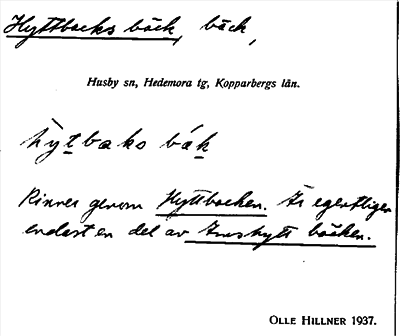 Hyttbacks bäck, bäck,
Husby sn, Hedemora tg, Kopparbergs län.
hy̱tbaks bák̲
Rinner genom Hyttbacken. Är egentligen
endast en del av hytt bäcken.
OLLE HILLNER 1937.